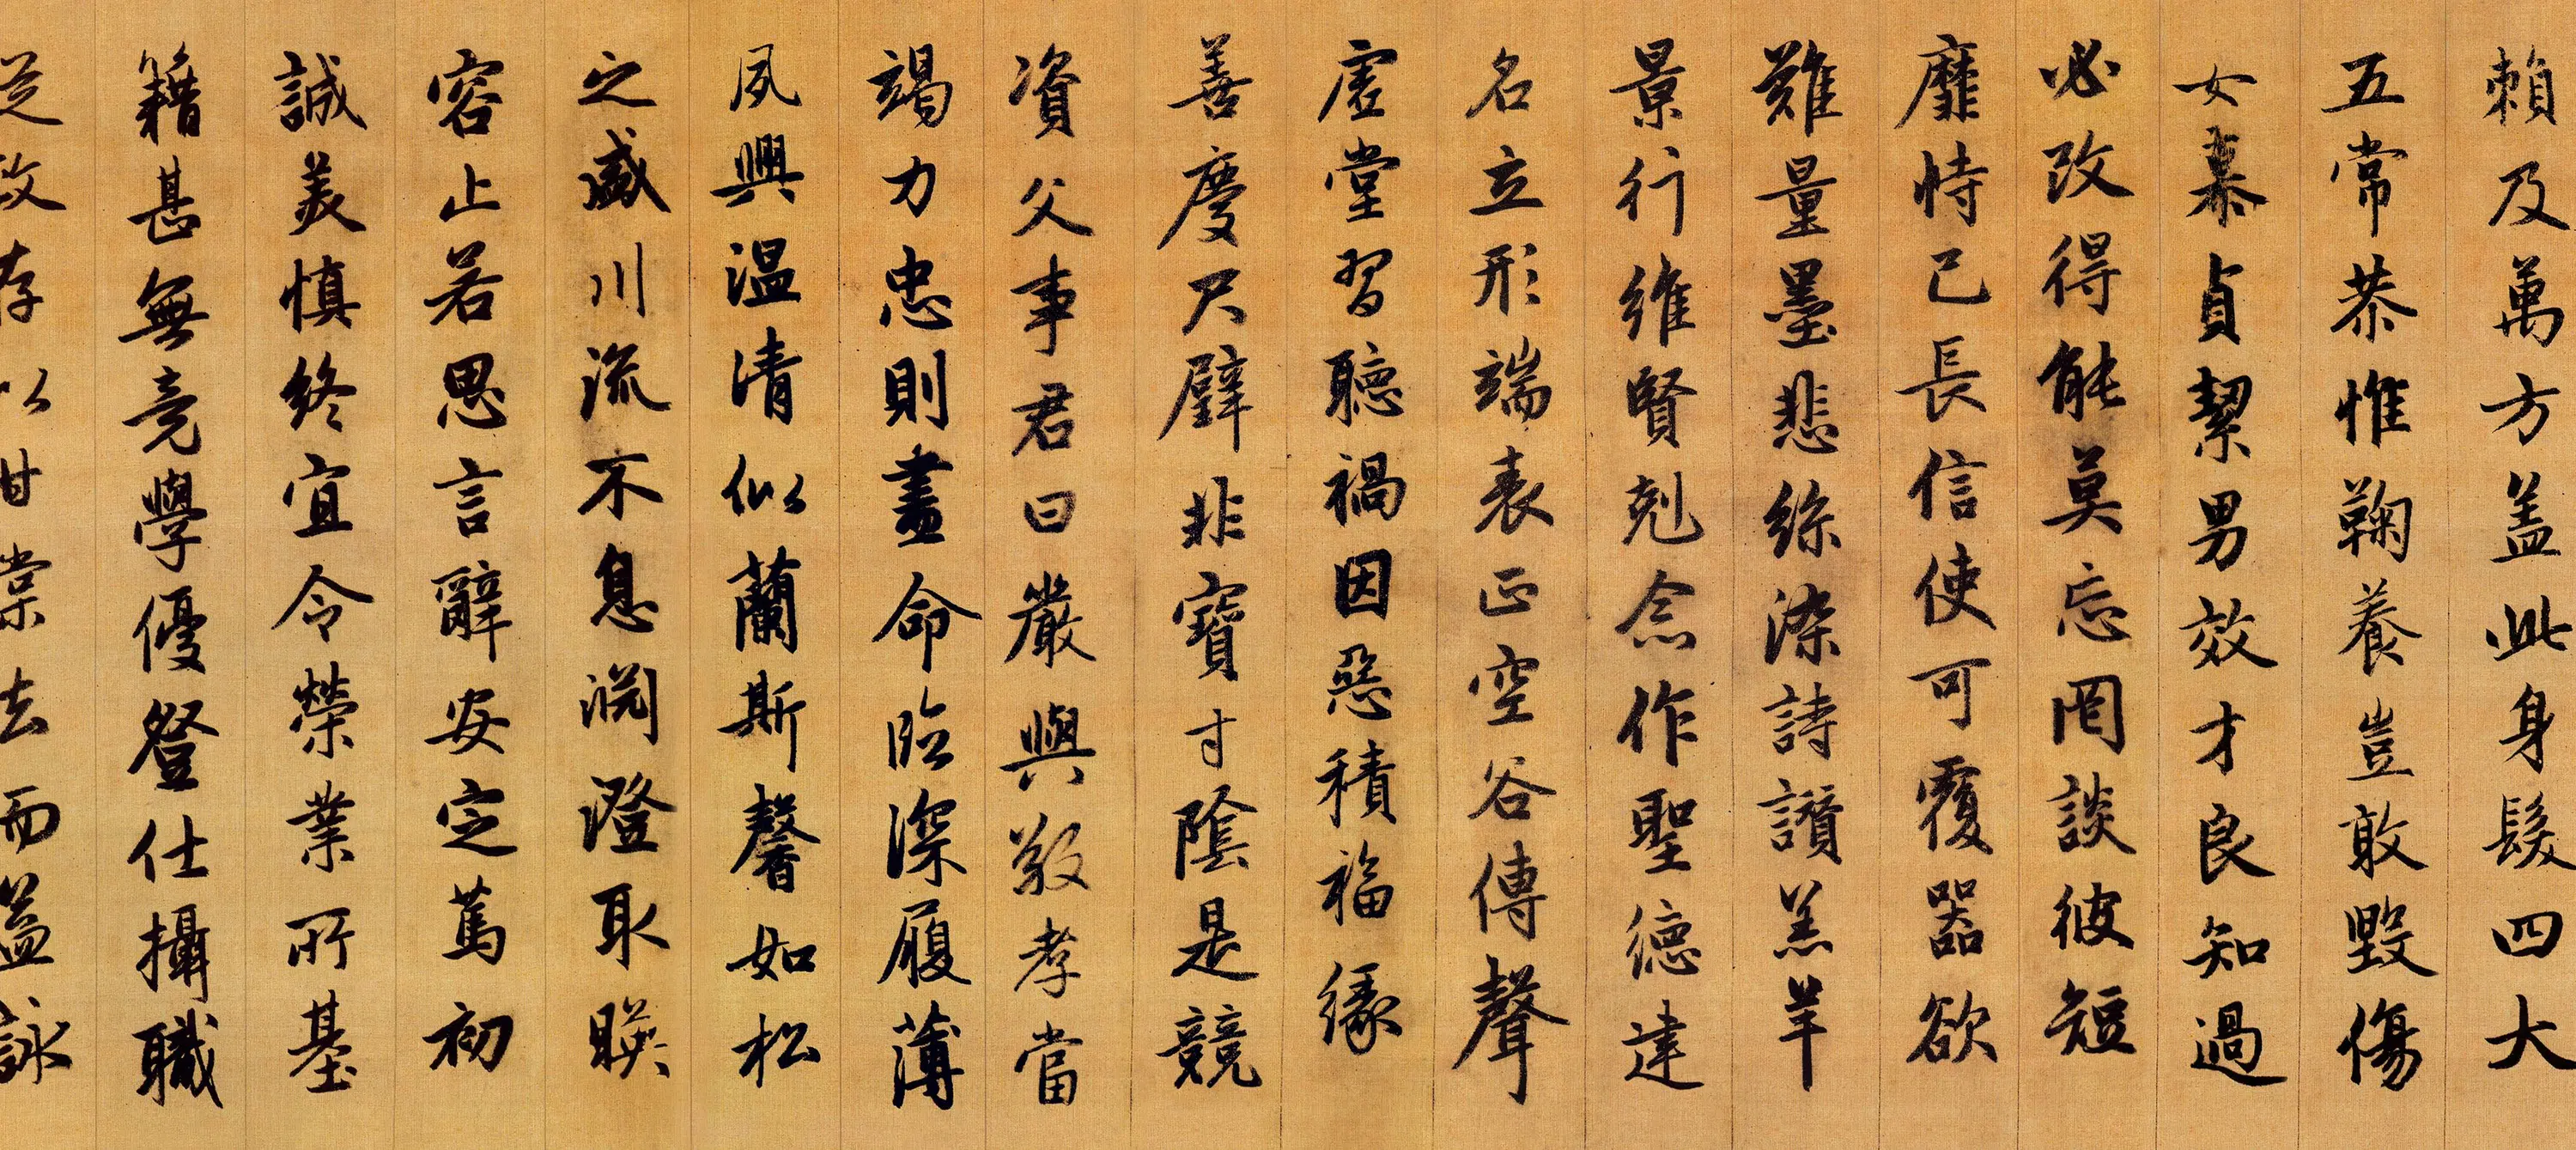 賴及萬方盖此身髮四大
五常恭惟鞠養豈敢毀傷
女慕貞絜男效才良知過
必改得能莫忘罔談彼短
靡恃己長信使可覆器欲
難量墨悲絲染詩讚羔羊
景行維賢剋念作聖德建
名立形端表正空谷傳聲
虛堂習聽禍因惡積福緣
善慶尺璧非寶寸陰是競
資父事君曰嚴與敬孝當
竭力忠則盡命臨深履薄
夙興温清似蘭斯馨如松
之盛川流不息淵澄取暎
容止若思言辭安定篤初
誠美慎終宜令榮業所基
籍甚無竟學優登仕攝職
從政存以甘棠去而益詠